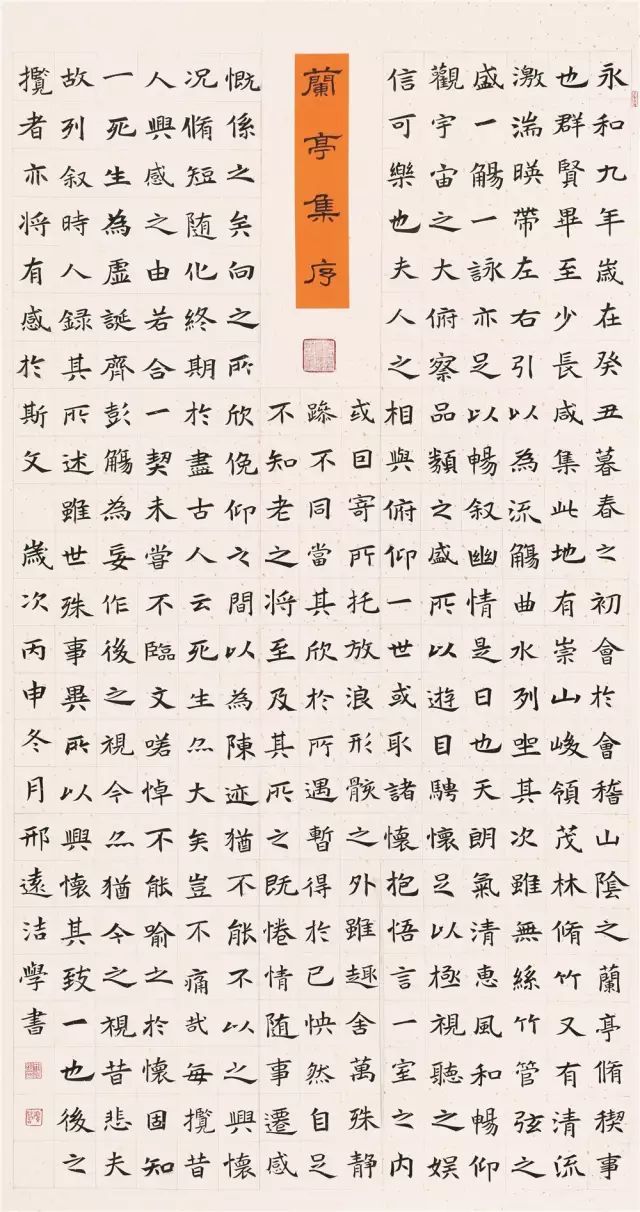 蘭亭集序
永和九年歲在癸丑暮春之初會於會稽山陰之蘭亭脩稧事
也群賢畢至少長咸集此地有崇山峻領茂林脩竹又有清流
激湍暎帶左右引以為流觴曲水列坐其次雖無絲竹管弦之
盛一觴一詠亦足以暢叙幽情是日也天朗氣清恵風和暢仰
觀宇宙之大俯察品類之盛所以遊目騁懷足以極視聽之娛
信可樂也夫人之相與俯仰一世或取諸懷抱悟言一室之內
或曰寄所托放浪形骸之外雖趣舍萬殊靜
躁不同當其欣於所遇暫得於己怏然自足
不知老之將至及其所之既惓情随事遷感
慨係之矣向之所欣俛仰之間以為陳迹猶不能不以之興懷
况脩短随化終期於盡古人云死生亦大矣豈不痛哉每攬昔
人興感之由若合一契未嘗不臨文嗟悼不能喻之於懷固知
一死生為虛誕齊彭觴為妄作後之視今亦猶今之視昔悲夫
故列叙時人録其所述雖世殊事異所以興懷其致一也後之
攬者亦將有感於斯文 歲次丙申冬月邢遠洁學書